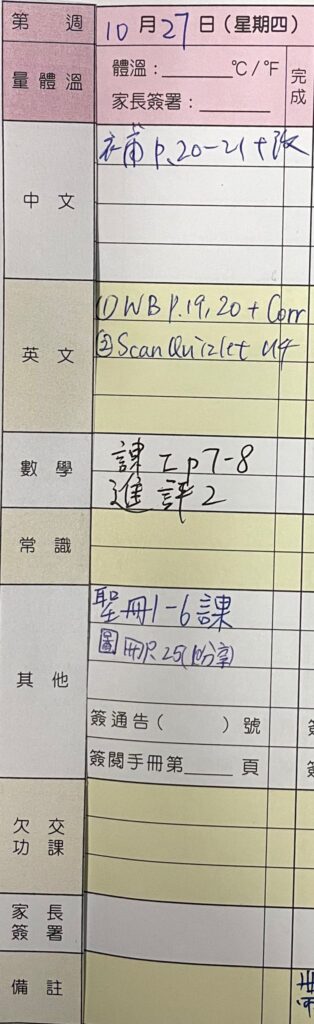 第 週 10月27日(星期四)
量體溫 體溫:______°C/°F
家長簽署:______
完成
中文 補 P.20-21+改
英文 ① WB P.19,20 + Corr
② Scan Quizlet U4
數學 課工p7-8
進評2
常識
其他 聖冊1-6課
圖冊P.25(分享)
簽通告( )號
簽閱手冊第____頁
欠交功課
家長簽署
備註